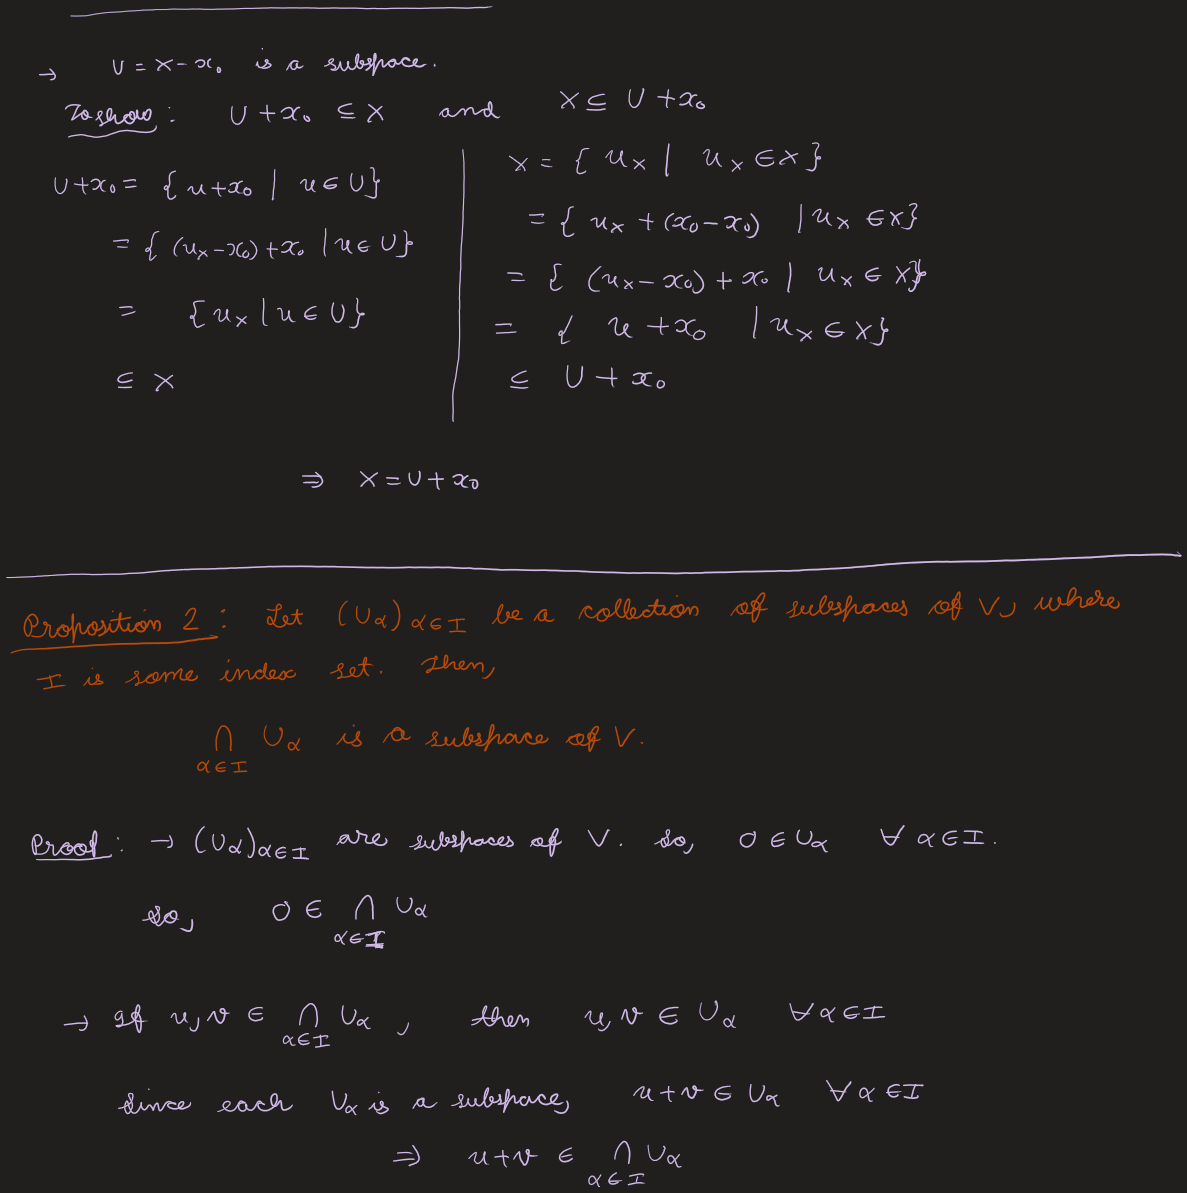 → U = X - x₀ is a subspace.
To show: U + x₀ ⊆ X and X ⊆ U + x₀
U + x₀ = { u + x₀ | u ∈ U }
= { (uₓ - x₀) + x₀ | u ∈ U }
= { uₓ | u ∈ U }
⊆ X
X = { uₓ | uₓ ∈ X }
= { uₓ + (x₀ - x₀) | uₓ ∈ X }
= { (uₓ - x₀) + x₀ | uₓ ∈ X }
= { u + x₀ | uₓ ∈ X }
⊆ U + x₀
⇒ X = U + x₀
Proposition 2: Let (Uα)α∈I be a collection of subspaces of V, where
I is some index set. Then,
⋂ Uα is a subspace of V.
α∈I
Proof: → (Uα)α∈I are subspaces of V. So, 0 ∈ Uα ∀ α ∈ I.
So, 0 ∈ ⋂ Uα
α∈I
→ If u, v ∈ ⋂ Uα, then u, v ∈ Uα ∀ α ∈ I
α∈I
Since each Uα is a subspace, u + v ∈ Uα ∀ α ∈ I
⇒ u + v ∈ ⋂ Uα
α∈I